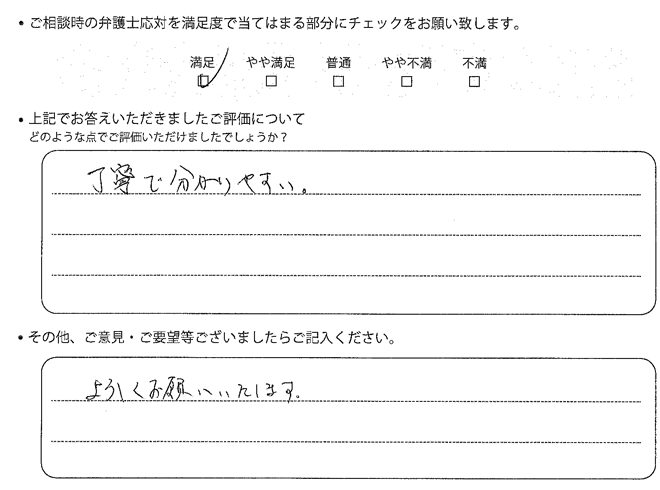 • ご相談時の弁護士応対を満足度で当てはまる部分にチェックをお願い致します。
満足 やや満足 普通 やや不満 不満
• 上記でお答えいただきましたご評価について
どのような点でご評価いただけましたでしょうか？
丁寧で分かりやすい。
• その他、ご意見・ご要望等ございましたらご記入ください。
よろしくお願いいたします。